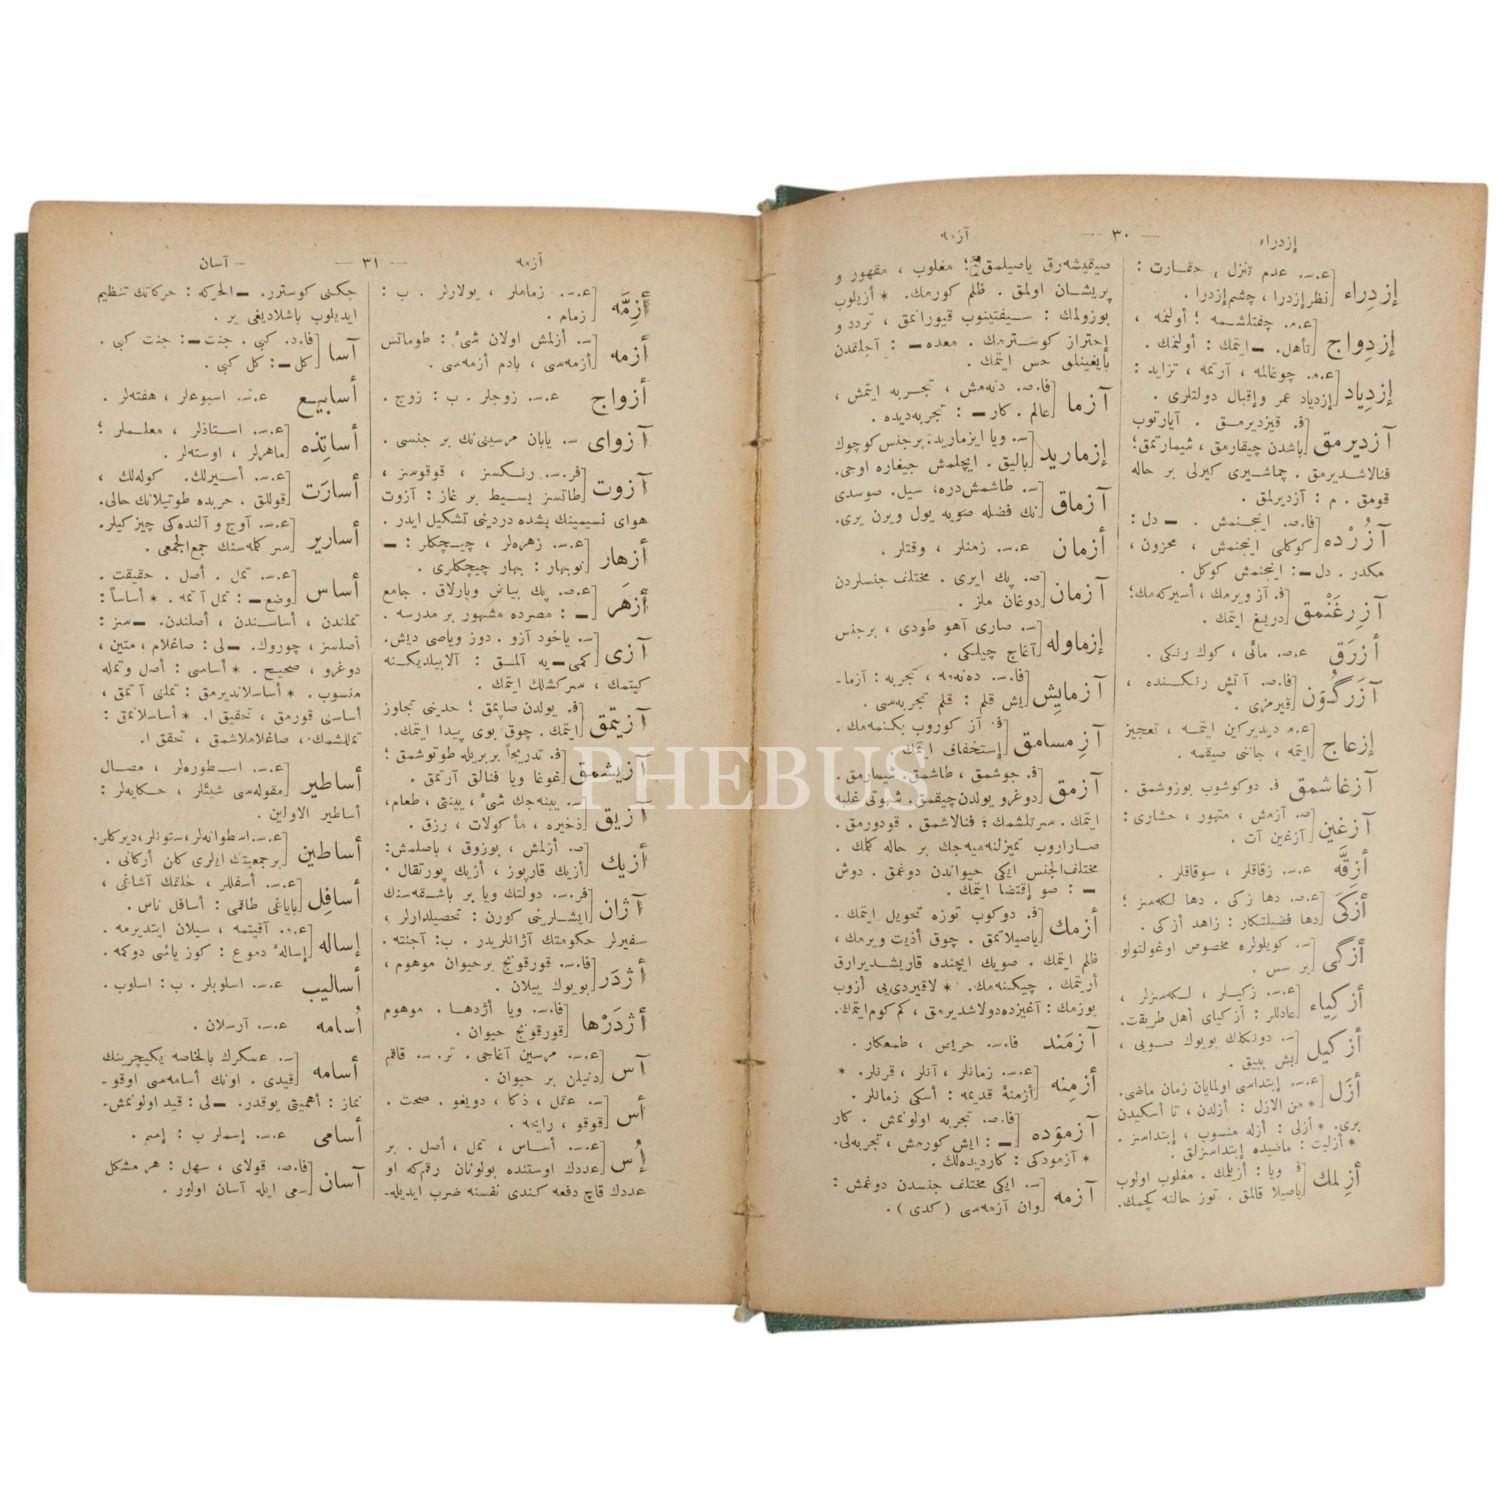 إزدراء — ٣٠ — آزمه
إزدِراء ع. س. عدم تنزل ، حقارت :
نظر إزدرا ، چشم إزدرا .
إزدِواج ع. م. چفتلشمه ؛ أولنمه ،
تأهل . — ايتمك : أولنمك .
إزدِياد ع. م. چوغالمه ، آرتمه ، تزايد :
إزدياد عمر وإقبال دولتلرى .
آزديرمق ف. قيزديرمق . آيارتوب
باشدن چيقارمق ، شيمارتمق ؛
فنالاشديرمق . چماشيرى كيرلى بر حاله
قومق . م : آزديرلمق .
آزُرْده فا. ص. اينجنمش . — دل :
كوكلى اينجنمش ، محزون ،
مكدر . دل — : اينجنمش كوكل .
آزِرغَنْمق ف. آز ويرمك ، أسيركه مك ؛
دريغ ايتمك .
أزرَق ع. ص. مائى ، كوك رنكى .
آزَرگُون فا. ص. آتش رنكنده ،
قيرمزى .
إزعاج ع. م. ديديركين ايتمه ، تعجيز
ايتمه ، جاننى صيقمه .
آزغاشمق ف. دوكوشوب بوزوشمق .
آزغين ص. آزمش ، متهور ، حشارى :
آزغين آت .
أزِقَّه ع. س. زقاقلر ، سوقاقلر .
أزكَى ع. ص. دها زكى . دها لكه سز ؛
دها فضيلتكار : زاهد أزكى .
أزگى س. كويلولره مخصوص اوغولتولو
بر سس .
أزكِياء ع. س. زكيلر ، لكه سزلر ،
عادللر : أزكياى أهل طريقت .
أزكيل س. دونكلك بويوك صوبى ،
بش بييق .
أزَل ع. س. إبتداسى اولمايان زمان ماضى .
* من الازل : أزلدن ، تا أسكيدن
برى . * أزلى : أزله منسوب ، إبتداسز .
* أزليت : ماضيده إبتداسزلق .
أزِلمك ف. ويا : أزيلمك . مغلوب اولوب
ياصيلا قالمق . توز حالنه كچمك .
صيقيشه رق ياصيلمق ؛ مغلوب ، مقهور و
پريشان اولمق . ظلم كورمك . * أزيلوب
بوزولمك : سيقتينوب قيورانمق ، تردد و
إحتراز كوسترمك . معده — : آجلقدن
بايغينلق حس ايتمك .
آزما فا. ص. دنه مش ، تجربه ايتمش ،
عالم . كار — : تجربه ديده .
إزماريد س. ويا ايزماريد : بر جنس كوچوك
باليق . ايچلمش جيغاره اوجى .
آزماق س. طاشمش دره ، سيل . صوسدى
نك فضله صويه يول ويرن يرى .
أزمان ع. س. زمنلر ، وقتلر .
آزمان ص. پك ايرى . مختلف جنسلردن
دوغان ملز .
إزماوله س. صارى آهو طودى ، بر جنس
آغاج چيلكى .
آزمايِش فا. س. ده نه مه ، تجربه : آزما-
يش قلم : قلم تجربه سى .
آزِمسامق ف. آز كوروب بكنمه مك .
إستخفاف ايتمك .
آزمق ف. جوشمق ، طاشمق . شيمارمق .
دوغرو يولدن چيقمق . شهوتى غلبه
ايتمك . سرتلشمك ؛ فنالاشمق . قودورمق .
صاراروب تميزلنه ميه جك بر حاله كلمك .
مختلف الجنس ايكى حيواندن دوغمق . دوش
— : صو إقتضا ايتمك .
أزمك ف. دوكوب توزه تحويل ايتمك .
ياصيلاتمق . چوق أذيت ويرمك ،
ظلم ايتمك . صويك ايچنده قاريشديرارق
أريتمك . چيكنه مك . * لاقيردى يى أزوب
بوزمك : آغيزده دولاشديرمق ، كم كوم ايتمك .
آزمَند فا. س. حريص ، طمعكار .
أزمِنه ع. س. زمانلر ، آنلر ، قرنلر . *
أزمنهٔ قديمه : أسكى زمانلر .
آزموَده فا. ص. تجربه اولونمش . كار
— : ايش كورمش ، تجربه لى .
* آزمودكى : كارديده لك .
آزمه س. ايكى مختلف جنسدن دوغمش :
وان آزمه سى (كدى) .
أزمه — ٣١ — آسان
أزِمَّه ع. س. زماملر ، يولارلر . ب :
زمام .
أزمه س. أزلمش اولان شىٔ : طوماتس
أزمه سى ، بادم أزمه سى .
أزواج ع. س. زوجلر . ب : زوج .
آزواى س. يابان مرسينى نك بر جنسى .
آزوت فر. س. رنكسز ، قوقوسز ،
طاتسز بسيط بر غاز : آزوت
هواى نسيمينك بشده دردينى تشكيل ايدر .
أزهار ع. س. زهره لر ، چيچكلر : —
نوبهار : بهار چيچكلرى .
أزهَر ع. ص. پك بياض وپارلاق . جامع
— : مصرده مشهور بر مدرسه .
آزى س. ياخود آزو . دوز وياصى ديش .
كمى — يه آلمق : آلابيلديكنه
كيتمك ، سركشلك ايتمك .
آزيتمق ف. يولدن صاپمق ؛ حدينى تجاوز
ايتمك . چوق بوى پيدا ايتمك .
آزيشمق ف. تدريجاً بر بريله طوتوشمق ؛
غوغا ويا فنالق آرتمق .
آزيق س. يينه جك شىٔ ، ييينتى ، طعام ،
ذخيره ، مأكولات ، رزق .
أزيك ص. أزلمش ، بوزوق ، باصلمش :
أزيك قارپوز ، أزيك پورتقال .
آژان فر. س. دولتك ويا بر باشقه سنك
ايشلرينى كورن : تحصيلدارلر ،
سفيرلر حكومتك آژانلريدر . ب : آجنته .
أژدَر فا. س. قورقونج بر حيوان موهوم ،
بويوك ييلان .
أژدَرْها فا. س. ويا أژدها . موهوم
قورقونج حيوان .
آس ع. س. مرسين آغاجى . تر. س. قاقم
دنيلن بر حيوان .
أس س. عقل ، ذكا ، دويغو . صحت .
قوقو ، رايحه .
اُس ع. س. أساس ، تمل ، أصل . بر
عددك اوستنده بولونان رقم كه او
عددك قاچ دفعه كندى نفسنه ضرب ايديله-
جكنى كوسترر . — الحركه : حركاتك تنظيم
ايديلوب باشلاديغى ير .
آسا فا. د. كبى . جنت — : جنت كبى .
كل — : كل كبى .
أسابيع ع. س. اسبوعلر ، هفته لر .
أساتِذه ع. س. استاذلر ، معلملر ؛
ماهرلر ، اوسته لر .
أسارَت ع. س. أسيرلك . كوله لك ،
قوللق . حربده طوتيلانك حالى .
أسارير ع. س. آوج و آلنده كى چيزكيلر .
سر كله سنك جمع الجمعى .
أساس ع. س. تمل . أصل . حقيقت .
وضع — : تمل آتمه . * أساساً :
تملندن ، أساسندن ، أصلندن . — سز :
أصلسز ، چوروك . — لى : صاغلام ، متين ،
دوغرو ، صحيح . * أساسى : أصل وتمله
منسوب . * أساسلانديرمق : تملنى آتمق ،
أساسى قورمق ، تحقيق ا . * أساسلانمق :
تمللشمك ، صاغلاملاشمق ، تحقق ا .
أساطير ع. س. اسطوره لر ، مصال
مقوله سى شيئلر ، حكايه لر :
أساطير الاولين .
أساطين ع. س. اسطوانه لر ، ستونلر ، ديركلر .
بر جمعيتك ايلرى كلن أركانى .
أسافِل ع. س. أسفللر ، خلقك آشاغى ،
باياغى طاقمى : أسافل ناس .
إساله ع. م. آقيتمه ، سيلان ايتديرمه .
إسالهٔ دموع : كوز ياشى دوكمه .
أساليب ع. س. اسلوبلر . ب : اسلوب .
اُسامه ع. س. آرسلان .
أسامه س. عسكرك بالخاصه يكيچرينك
قيدى . اونك أسامه سى اوقو-
نماز : أهميتى يوقدر . — لى : قيد اولونمش .
أسامى ع. س. إسملر ب : إسم .
آسان فا. ص. قولاى ، سهل : هر مشكل
سمى ايله آسان اولور .
PHEBUS